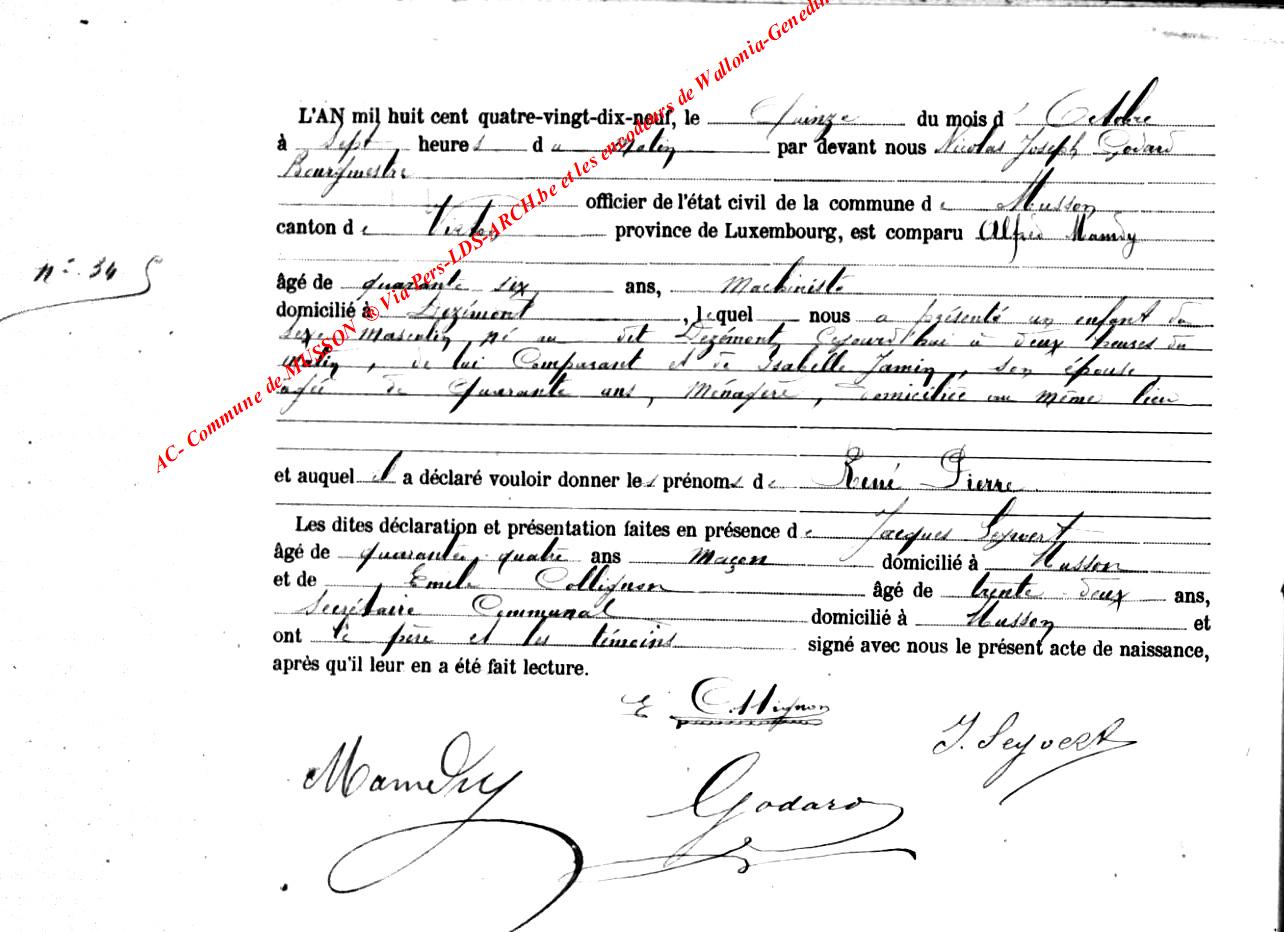 AC- Commune de MUSSON ® Via Pers-LDS-ARCH.be et les encodeurs de Wallonia-Genedin
L'AN mil huit cent quatre-vingt-dix-neuf, le Quinze du mois d' Octobre
à Sept heures du Matin par devant nous Nicolas Joseph Godard
Bourgmestre
officier de l'état civil de la commune de Musson
canton de Virton province de Luxembourg, est comparu Alfred Mamdy
n° 34
âgé de quarante six ans, Machiniste
domicilié à , lequel nous a présenté un enfant du
sexe Masculin, né au dit Cejourd'hui à deux heures du
matin, de lui Comparant et de Isabelle Jamin, son épouse,
agée de Quarante ans, Ménagère, domiciliée au même lieu
et auquel il a déclaré vouloir donner les prénoms de René Pierre
Les dites déclaration et présentation faites en présence de Jacques Seyvert
âgé de quarante quatre ans maçon domicilié à Musson
et de Emile Collignon âgé de trente deux ans,
Secrétaire Communal domicilié à Musson et
ont le père et les témoins signé avec nous le présent acte de naissance,
après qu'il leur en a été fait lecture.
E Collignon
J. Seyvert
Mamdy
Godard